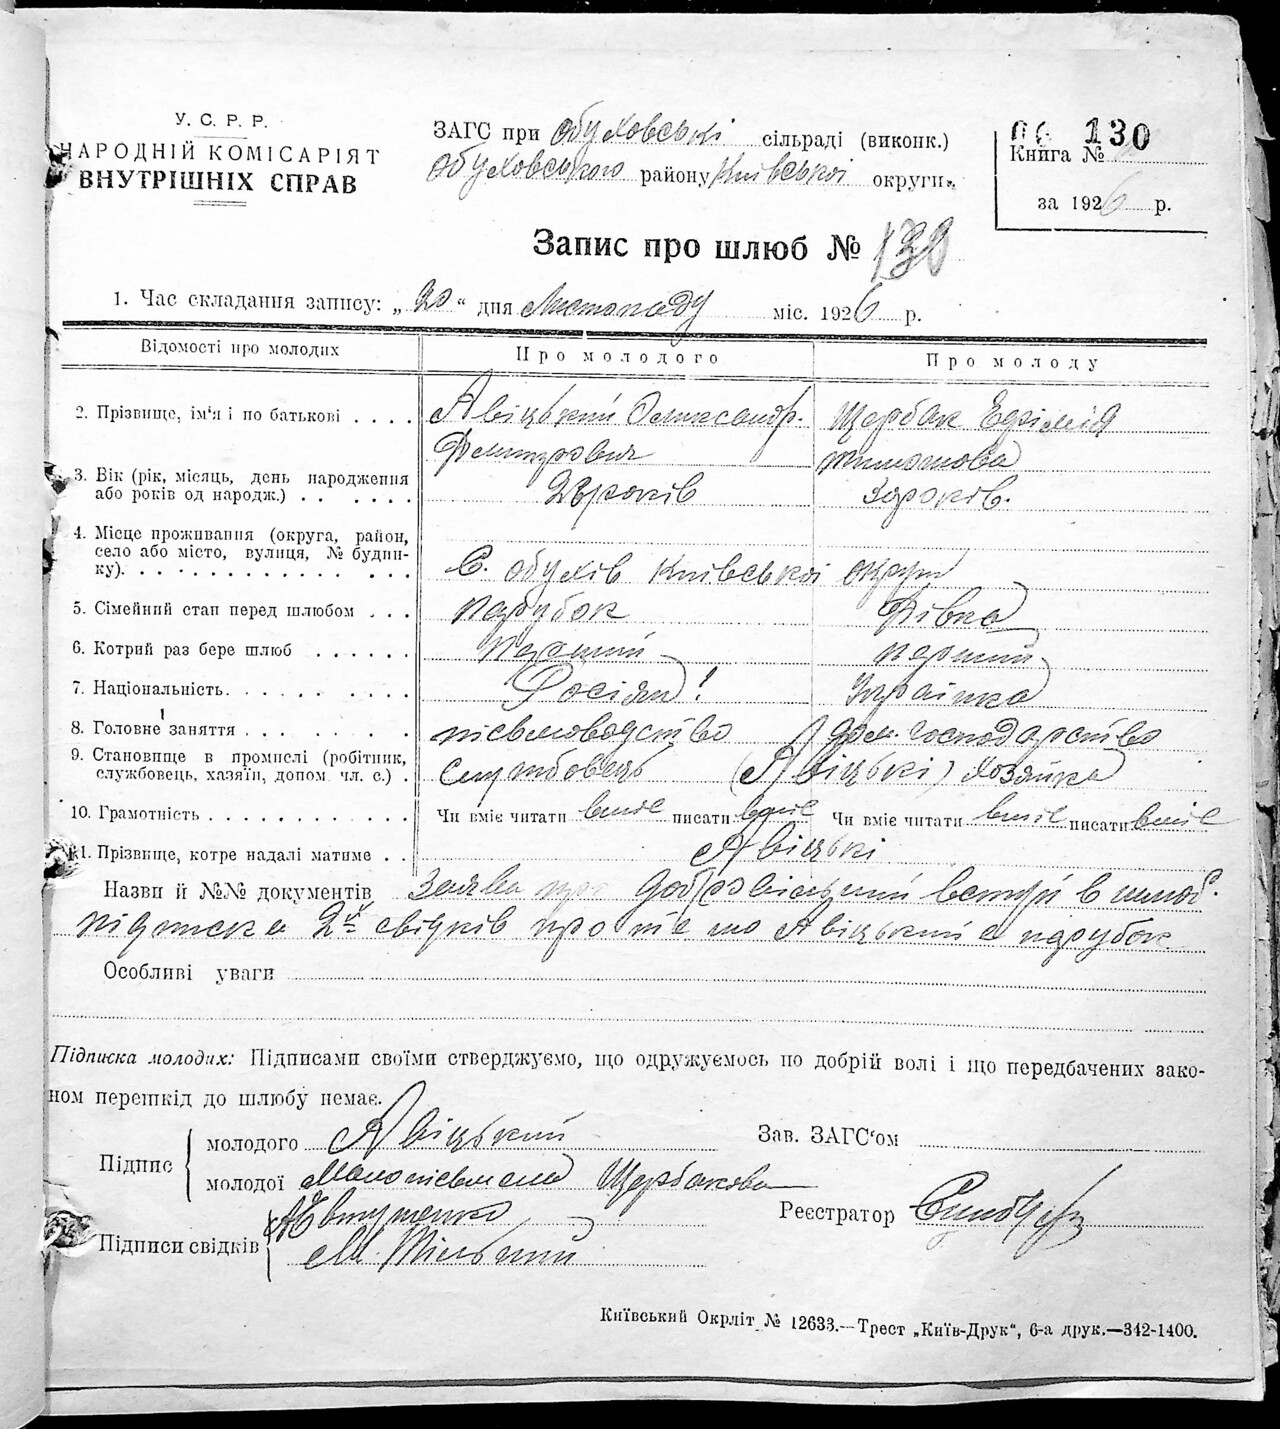 У. С. Р. Р.
НАРОДНІЙ КОМІСАРІЯТ
ВНУТРІШНІХ СПРАВ
ЗАГС при Обуховські сільраді (виконк.)
Обуховського району Київської округи.
130
Книга №
за 1926 р.
Запис про шлюб № 130
1. Час складання запису: „20“ дня Листопаду міс. 1926 р.
Відомості про молодих Про молодого Про молоду
2. Прізвище, ім'я і по батькові . . . . Явіцький Олександр. Щербак Ефімія
Демитрович Тимошова
3. Вік (рік, місяць, день народження
або років од народж.) . . . . . . років років.
4. Місце проживання (округа, район,
село або місто, вулиця, № будин-
ку). . . . . . . . . . . . . . . . С. Обухів Київської округи
5. Сімейний стан перед шлюбом . . . парубок Дівка
6. Котрий раз бере шлюб . . . . . . перший перший
7. Національність. . . . . . . . . . Росіян! Українка
8. Головне заняття . . . . . . . . письмоводство дом. господарство
9. Становище в промислі (робітник,
службовець, хазяїн, допом чл. с.) . Службовець (Явіцькі) Хозяйка
10. Грамотність . . . . . . . . . . . . Чи вміє читати вміє писати вміє Чи вміє читати вміє писати вміє
11. Прізвище, котре надалі матиме . . Явіцькі
Назви й №№ документів Заява про добровільний вступ в шлюб.
підписка 2х свідків про те що Явіцький є парубок
Особливі уваги
Підписка молодих: Підписами своїми стверджуємо, що одружуємось по добрій волі і що передбачених зако-
ном перешкід до шлюбу немає.
Підпис молодого Явіцький Зав. ЗАГС'ом
молодої Малописьмена Щербакова
Реєстратор
Підписи свідків Євтушенко
М.
Київський Окрліт № 12633.—Трест „Київ-Друк“, 6-а друк.—342-1400.